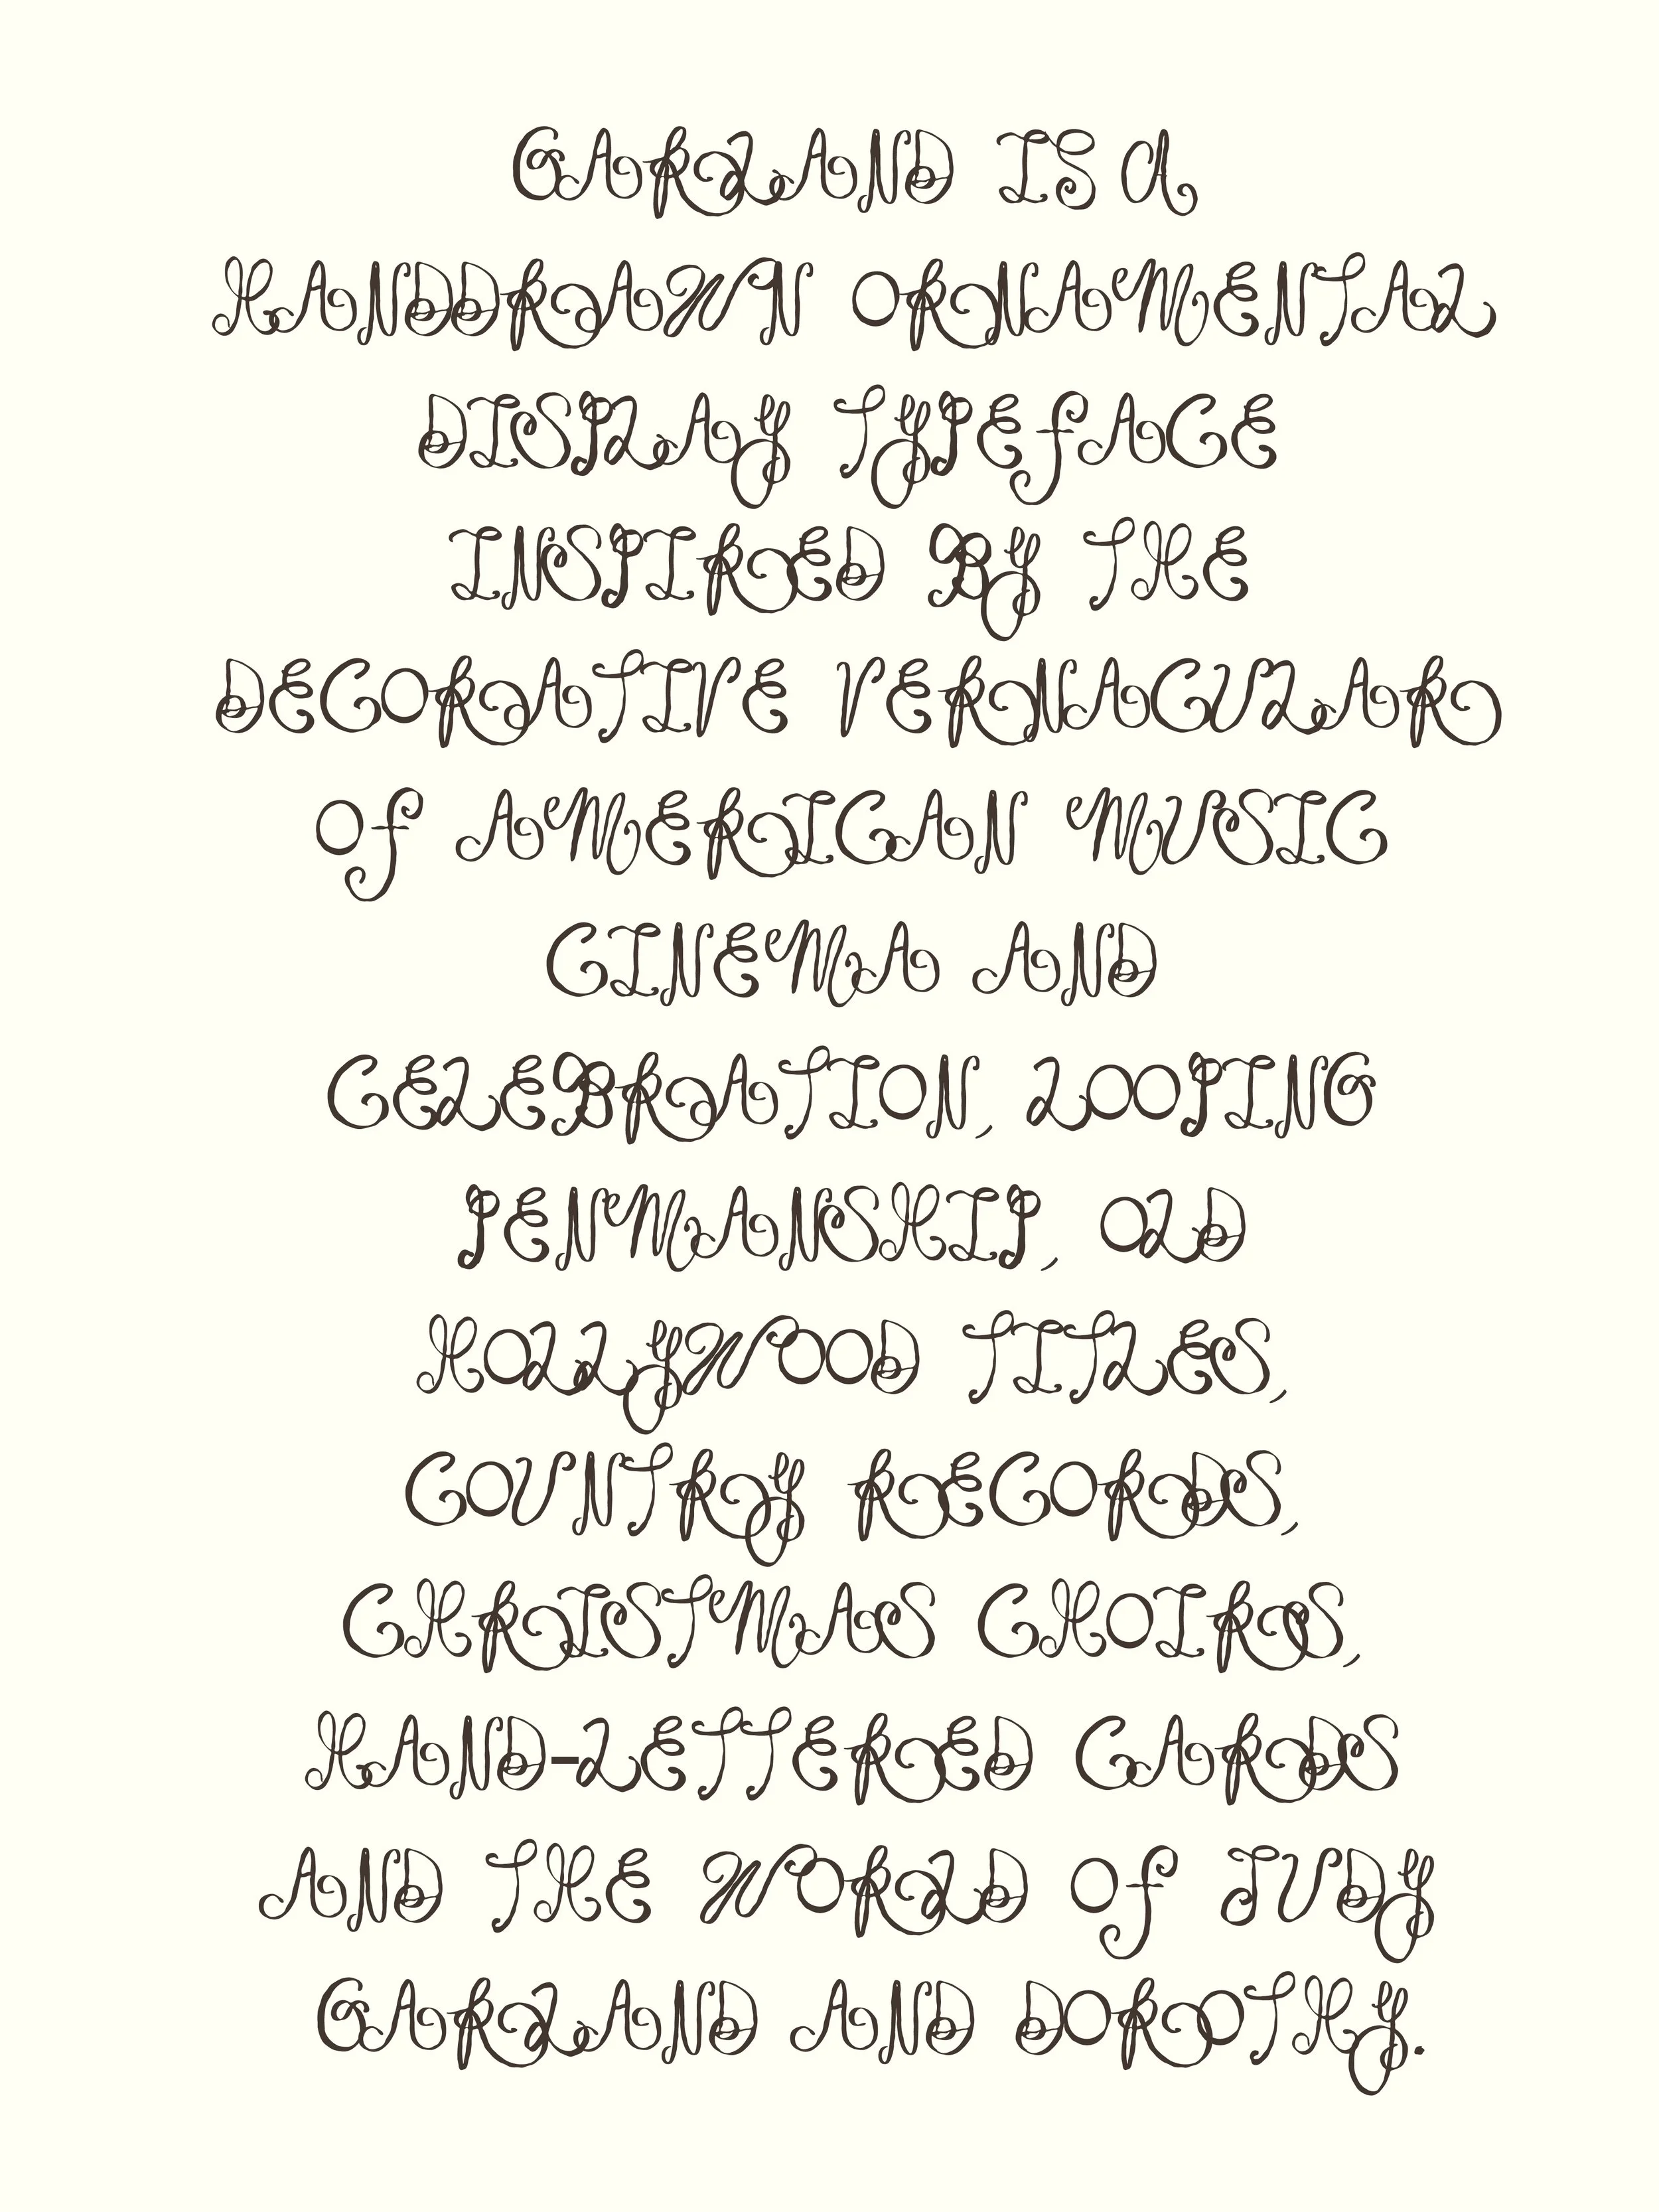 GARLAND IS A
HANDDRAWN ORNAMENTAL
DISPLAY TYPEfACE
INSPIRED BY THE
DECORATIVE VERNACULAR
Of AMERICAN MUSIC
CINEMA AND
CELEBRATION, LOOPING
PENMANSHIP, OLD
HOLLYWOOD TITLES,
COUNTRY RECORDS,
CHRISTMAS CHOIRS,
HAND-LETTERED CARDS
AND THE WORLD Of JUDY
GARLAND AND DOROTHY.